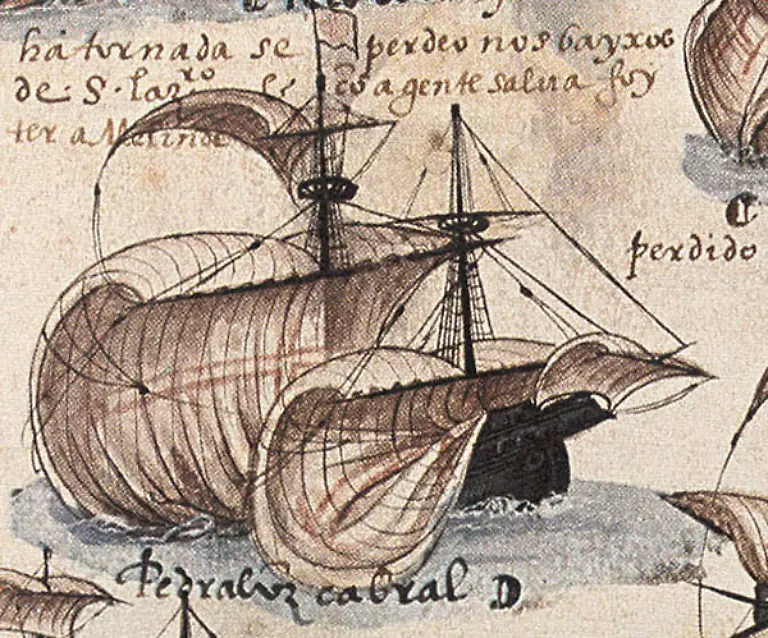 há tornada se perdeo nos bayxos
de: S. lazro e có a gente salva foy
ter a Melinde
perdido
Pedraluz cabral D